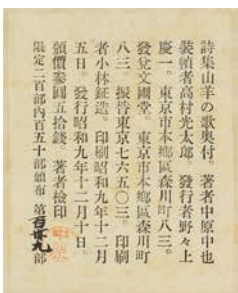 詩集山羊の歌奥付。著者中原中也
裝幀者高村光太郎 發行者野々上
慶一。東京市本鄕區森川町八三。
發兌文圃堂。東京市本鄕區森川町
八三 振替東京七六五〇三。印刷
者小林鉦造。印刷昭和九年十二月
五日。發行昭和九年十二月十日。
頒價參圓五拾錢 著者檢印
限定二百部內百五十部頒布 第百廿九部
中原